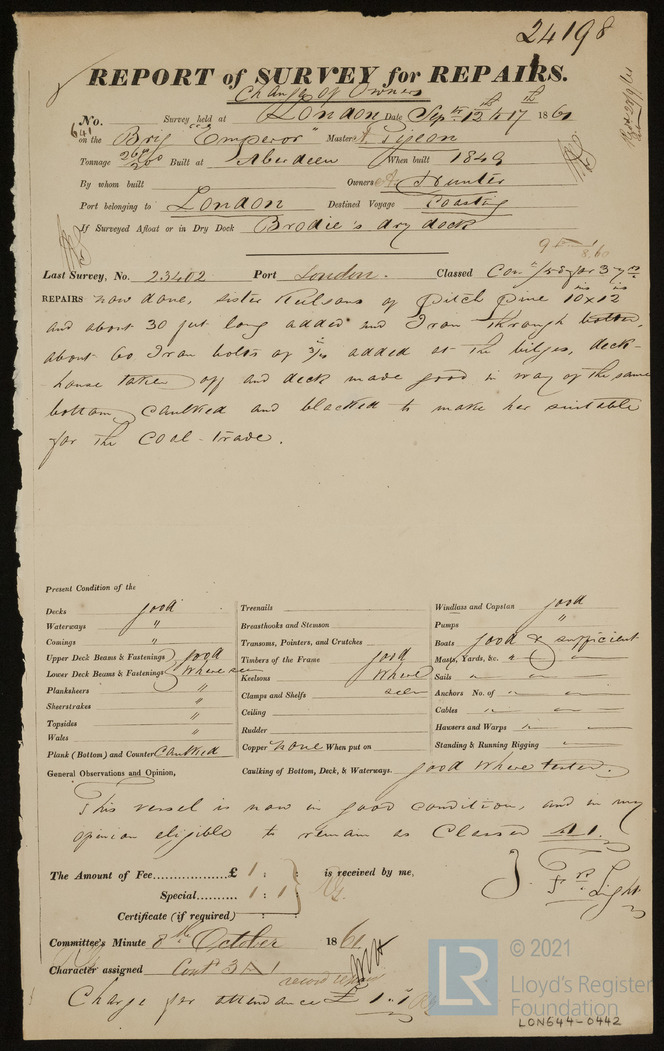 24198
REPORT of SURVEY for REPAIRS.
Change of Owners
No. 641 Survey held at London Date Sep. 12th to 17th 1861
on the Brig "Emperor" Master J. Pigeon
Tonnage 268/260 Built at Aberdeen When built 1849
By whom built Owners A. Hunter
Port belonging to London Destined Voyage Coasting
If Surveyed Afloat or in Dry Dock Brodie's dry dock
Last Survey, No. 23402 Port London. Classed Con
REPAIRS now done, sister Keelsons of pitch pine 10 ins x 12 ins
and about 30 feet long added and Iron through bolted,
about 60 Iron bolts of added at the bilges, deck-
house taken off and deck made good in way of the same
bottom caulked and blacked to make her suitable
for the Coal-trade.
Present Condition of the
Decks good
Waterways "
Comings "
Upper Deck Beams & Fastenings good
Lower Deck Beams & Fastenings where seen
Planksheers "
Sheerstrakes "
Topsides "
Wales "
Plank (Bottom) and Counter Caulked
Treenails
Breasthooks and Stemson
Transoms, Pointers, and Crutches
Timbers of the Frame good
Keelsons where
Clamps and Shelfs seen
Ceiling
Rudder
Copper none When put on
Windlass and Capstan good
Pumps "
Boats good & sufficient
Masts, Yards, &c. " "
Sails " "
Anchors No. of " "
Cables " "
Hawsers and Warps " "
Standing & Running Rigging " "
General Observations and Opinion,
Caulking of Bottom, Deck, & Waterways. good where tested.
This vessel is now in good condition, and in my
opinion eligible to remain as Classed A1.
The Amount of Fee £ 1 : : is received by me,
Special 1 : 1
J. Fr. Light
Certificate (if required) : :
Committee's Minute 8th October 1861
Character assigned Cont. 3 A 1
Charge for attendance £ 1.. 1
LR
© 2021
Lloyd's Register
Foundation
LON644-0442